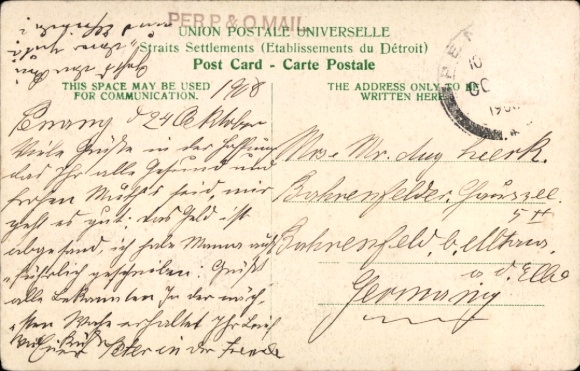 PER P & O MAIL
UNION POSTALE UNIVERSELLE
Straits Settlements (Etablissements du Détroit)
Post Card - Carte Postale
THIS SPACE MAY BE USED
FOR COMMUNICATION.
THE ADDRESS ONLY TO BE
WRITTEN HERE
10
OC
1908
Penang d 24 Oktober
Viele Grüße in der Hoffnung
das Ihr alle Gesund und
frohen Muths seid, mir
geht es gut. das Geld ist
abgesand, ich habe Mama aus-
führlich geschrieben. Grüßt
alle Bekannten In der näch-
sten Woche erhaltet Ihr
Euer Peter in der Fremde
Mrs. Mr. Aug
Bahrenfelder
5 II
Bahrenfeld, b. Altona
a d. Elbe
Germany